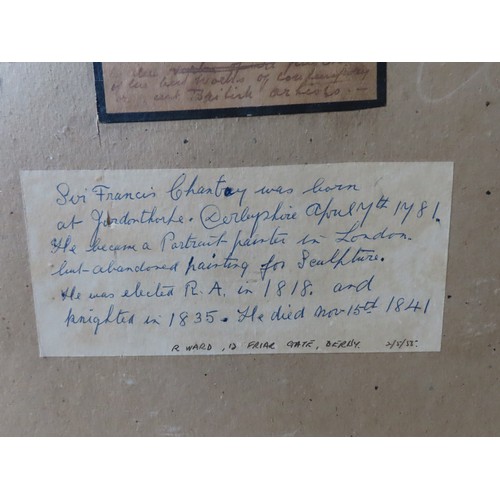 of the best works of contemporary
British artists. —
Sir Francis Chantey was born
at Jordonthorpe. Derbyshire April 7th 1781.
He became a Portrait painter in London.
but abandoned painting for Sculpture.
He was elected R.A. in 1818. and
knighted in 1835. He died Nov 15th 1841
R WARD, 12 FRIAR GATE, DERBY. 2/5/55.